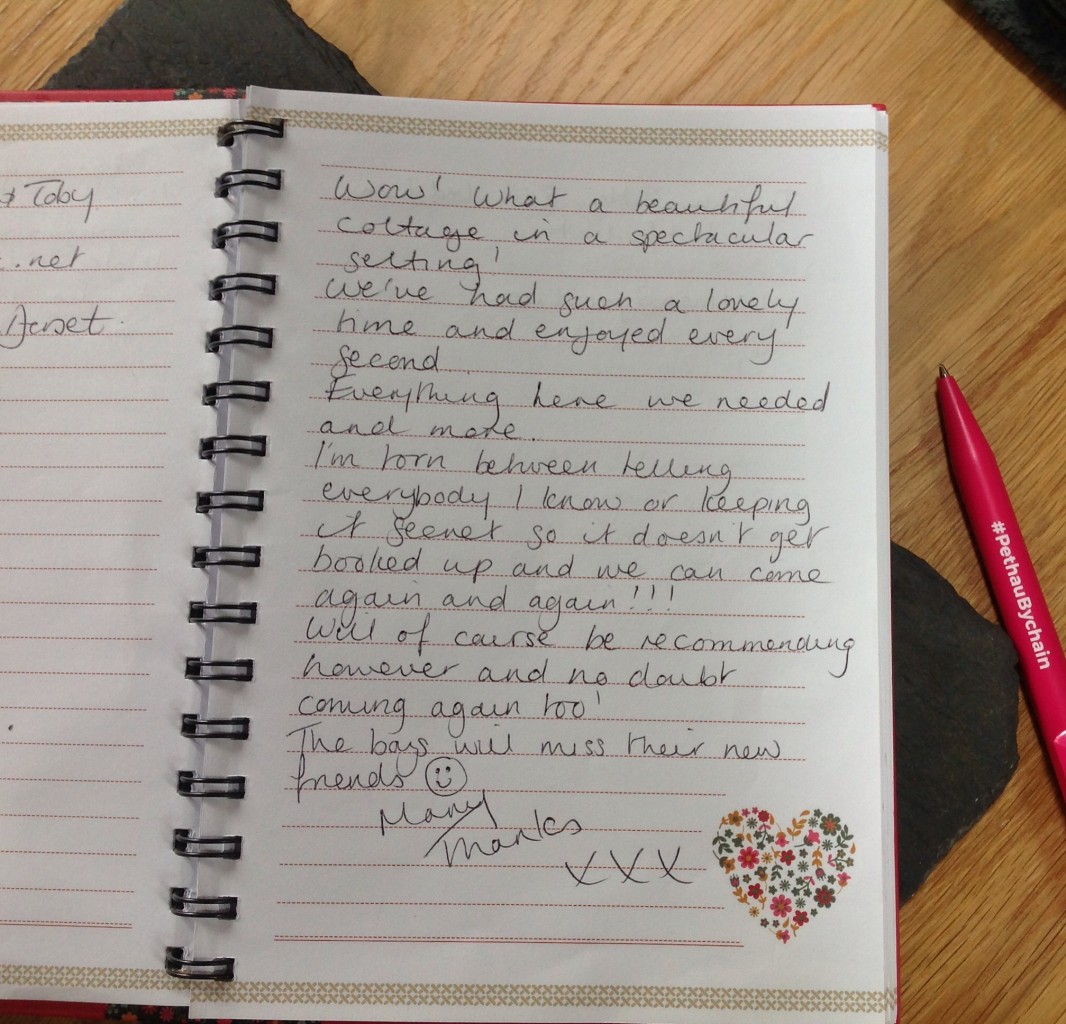 & Toby
.net
Dorset.
Wow! What a beautiful
cottage in a spectacular
setting!
We've had such a lovely
time and enjoyed every
second.
Everything here we needed
and more.
I'm torn between telling
everybody I know or keeping
it secret so it doesn't get
booked up and we can come
again and again!!!
Will of course be recommending
however and no doubt
coming again too!
The boys will miss their new
friends ☺
Many
Thanks
XXX
#PethauBychain